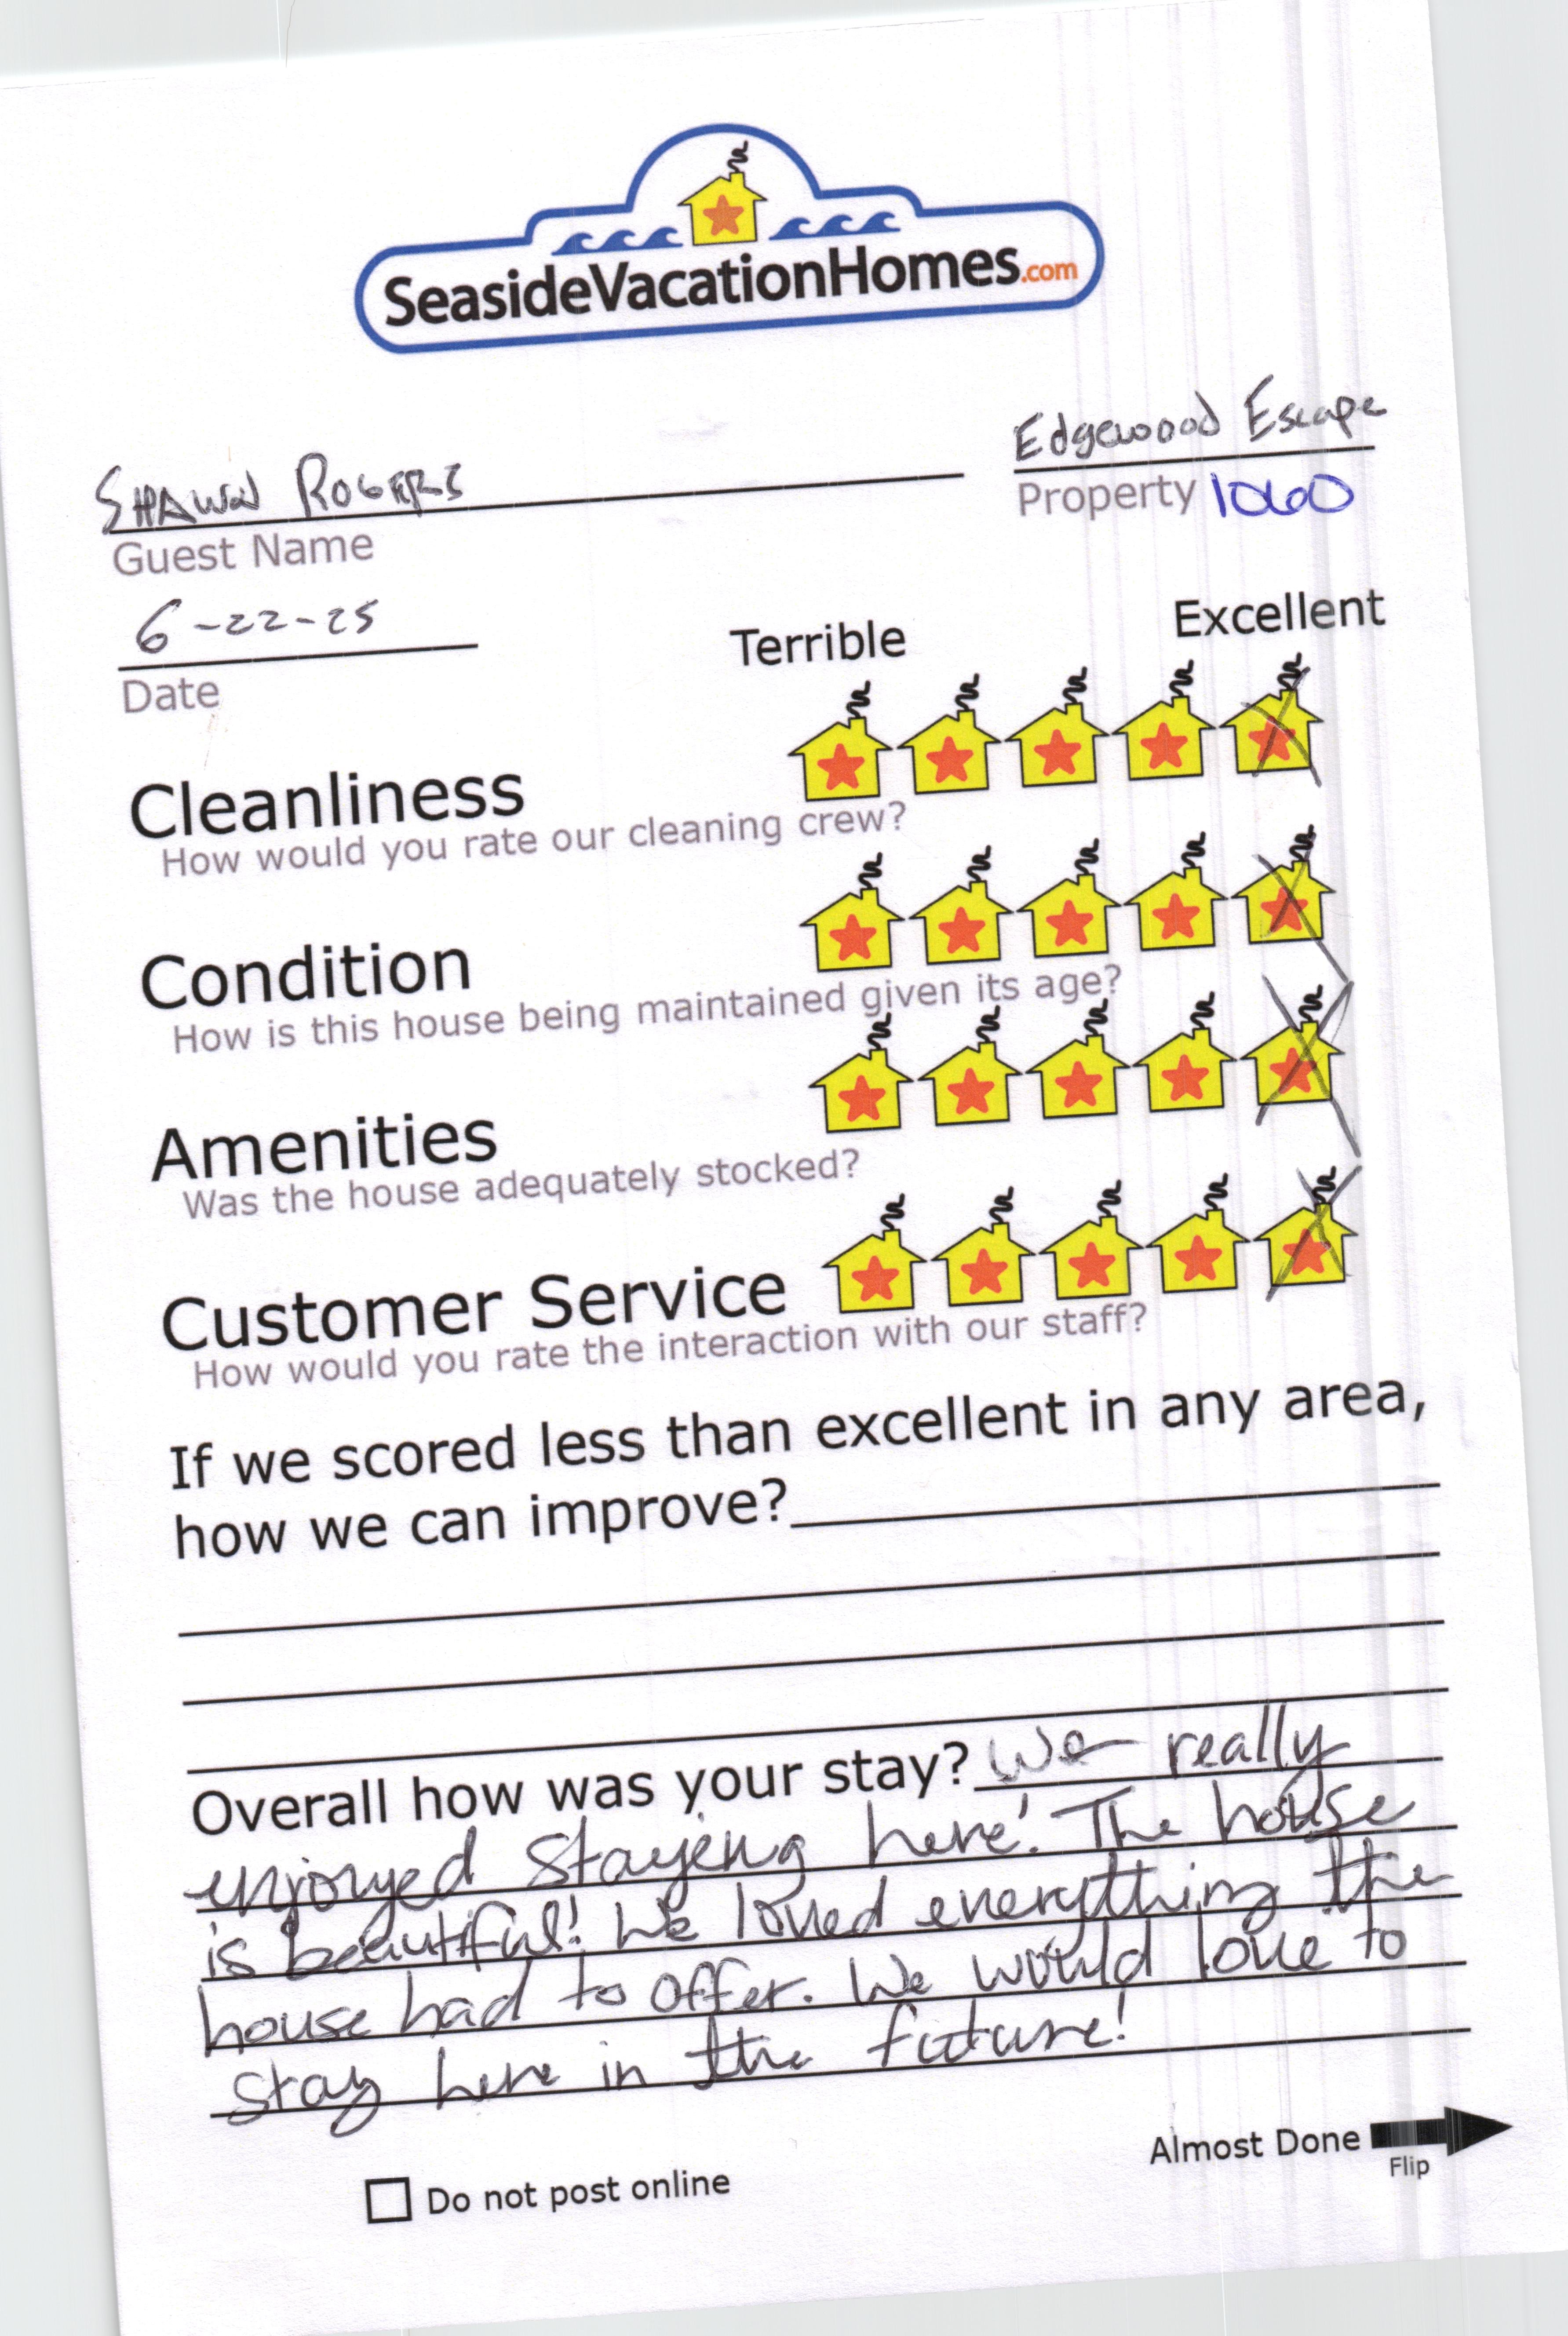 SeasideVacationHomes.com
Shawn Rogers
Edgewood Escape
Guest Name
Property 1060
6-22-25
Date
Terrible
Excellent
Cleanliness
How would you rate our cleaning crew?
Condition
How is this house being maintained given its age?
Amenities
Was the house adequately stocked?
Customer Service
How would you rate the interaction with our staff?
If we scored less than excellent in any area,
how we can improve?
Overall how was your stay? We really
enjoyed staying here! The house
is beautiful! We loved everything the
house had to offer. We would love to
stay here in the future!
Almost Done
Flip
Do not post online